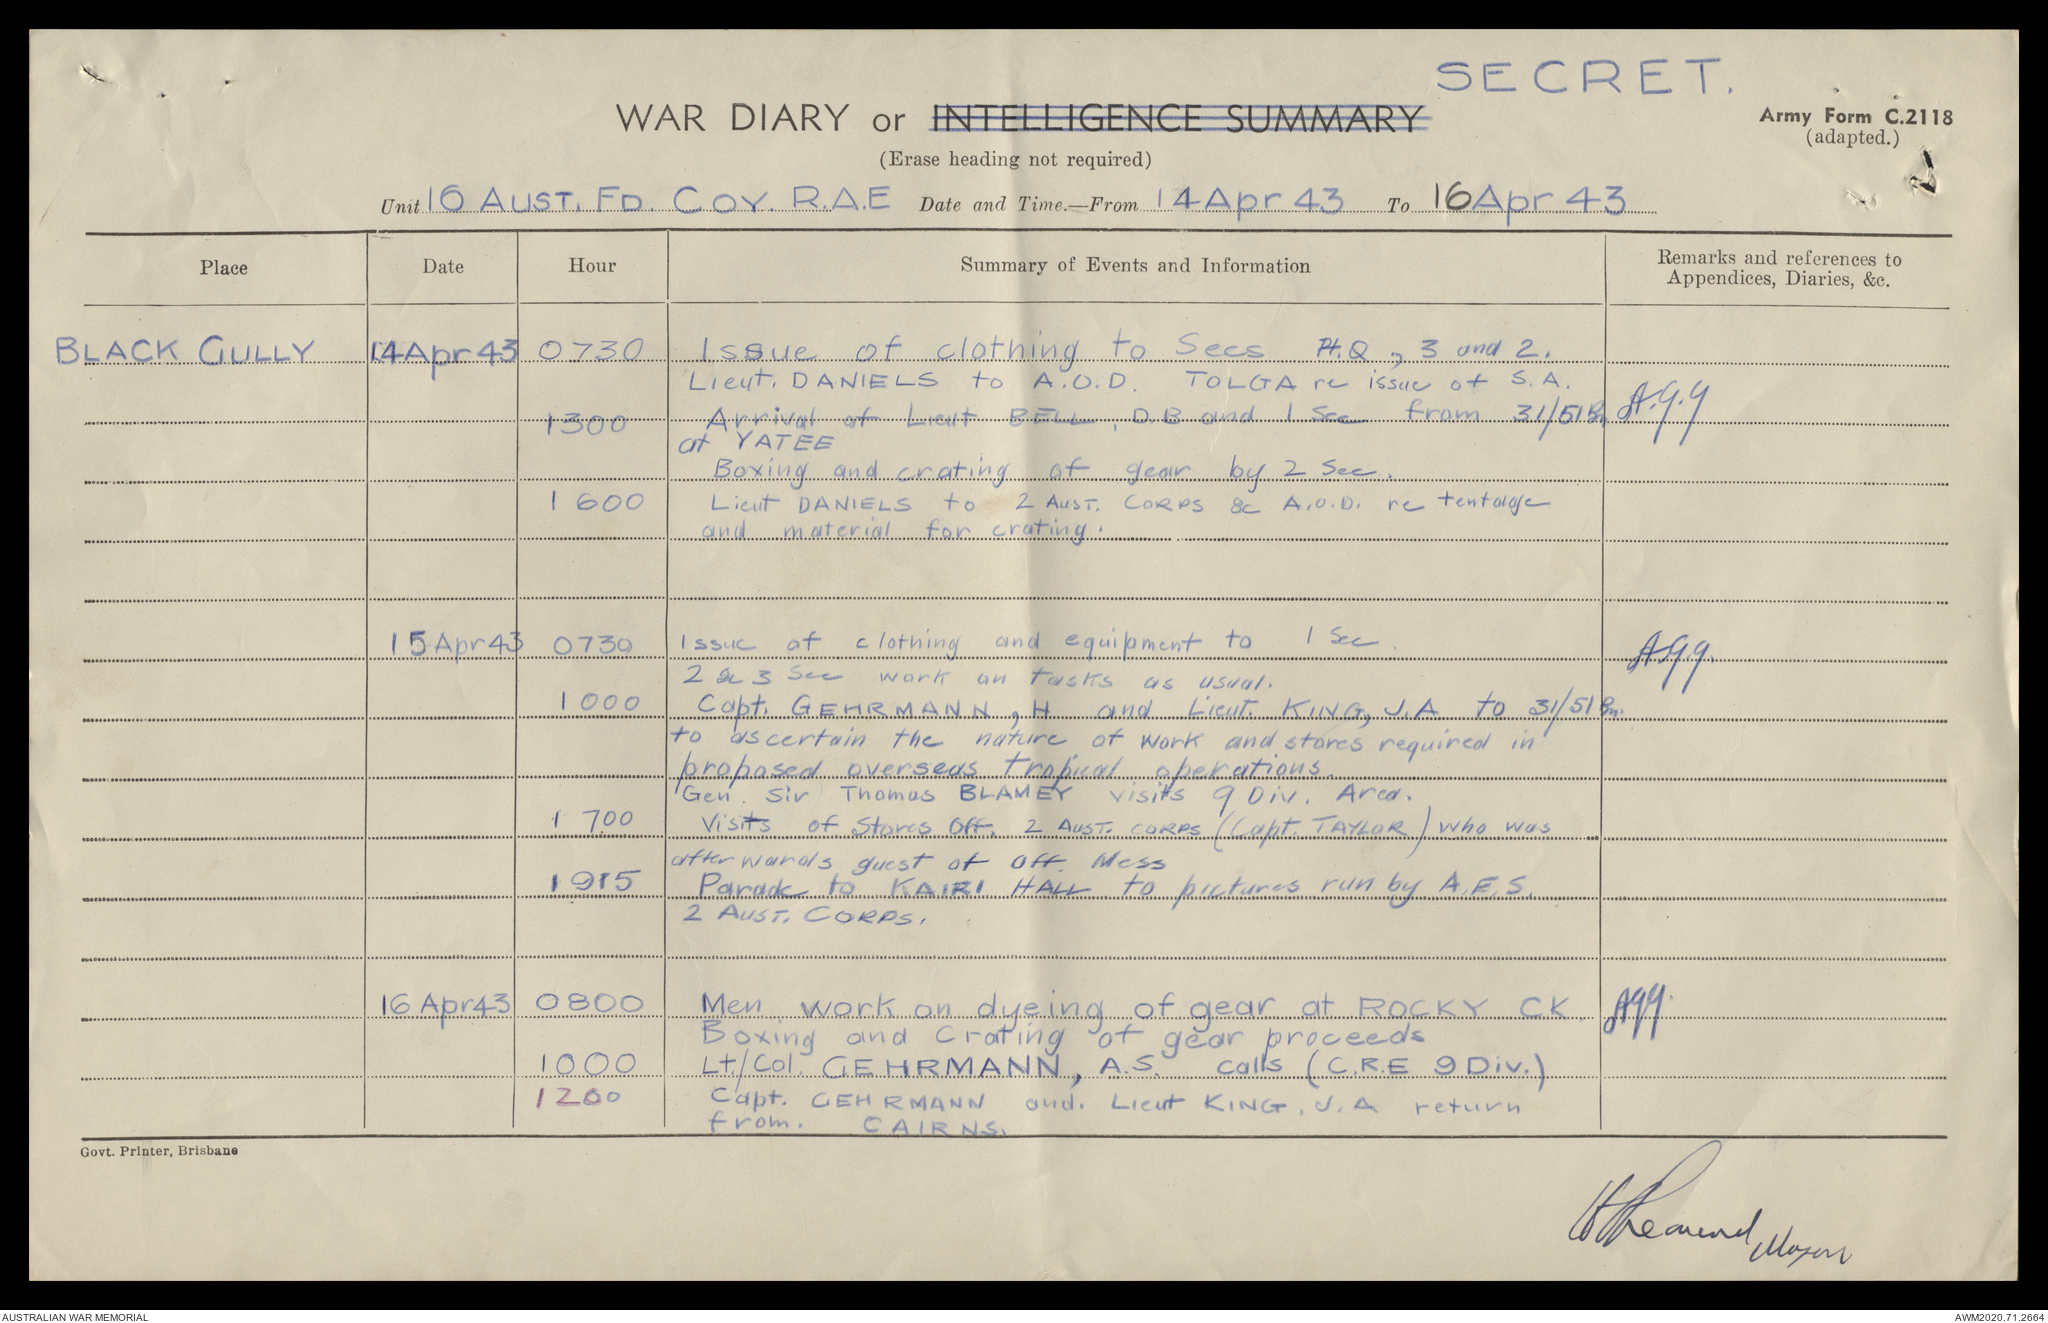 SECRET.
WAR DIARY or INTELLIGENCE SUMMARY
Army Form C.2118
(adapted.)
(Erase heading not required)
Unit 16 AUST. FD. COY. R.A.E Date and Time.—From 14 Apr 43 To 16 Apr 43
Place Date Hour Summary of Events and Information Remarks and references to
Appendices, Diaries, &c.
BLACK GULLY 14 Apr 43 0730 Issue of clothing to Secs H.Q, 3 and 2.
Lieut. DANIELS to A.O.D. TOLGA re issue of S.A.
1300 Arrival of Lieut BELL, D.B and 1 Sec from 31/51 Bn
at YATEE
Boxing and crating of gear by 2 Sec.
1600 Lieut DANIELS to 2 AUST. CORPS & A.O.D. re tentage
and material for crating.
15 Apr 43 0730 Issue of clothing and equipment to 1 Sec.
2 & 3 Sec work on tasks as usual.
1000 Capt. GEHRMANN, H and Lieut. KING, J.A to 31/51 Bn.
to ascertain the nature of work and stores required in
proposed overseas tropical operations.
Gen. Sir Thomas BLAMEY visits 9 Div. Area.
1700 Visits of Stores Off. 2 AUST. CORPS (Capt. TAYLOR) who was
afterwards guest of Off. Mess
1915 Parade to KAIRI HALL to pictures run by A.E.S.
2 AUST. CORPS.
16 Apr 43 0800 Men work on dyeing of gear at ROCKY CK.
Boxing and Crating of gear proceeds
1000 Lt/Col. GEHRMANN, A.S. calls (C.R.E 9 Div.)
1200 Capt. GEHRMANN and Lieut KING, J.A return
from. CAIRNS.
Govt. Printer, Brisbane
AUSTRALIAN WAR MEMORIAL
AWM2020.71.2664